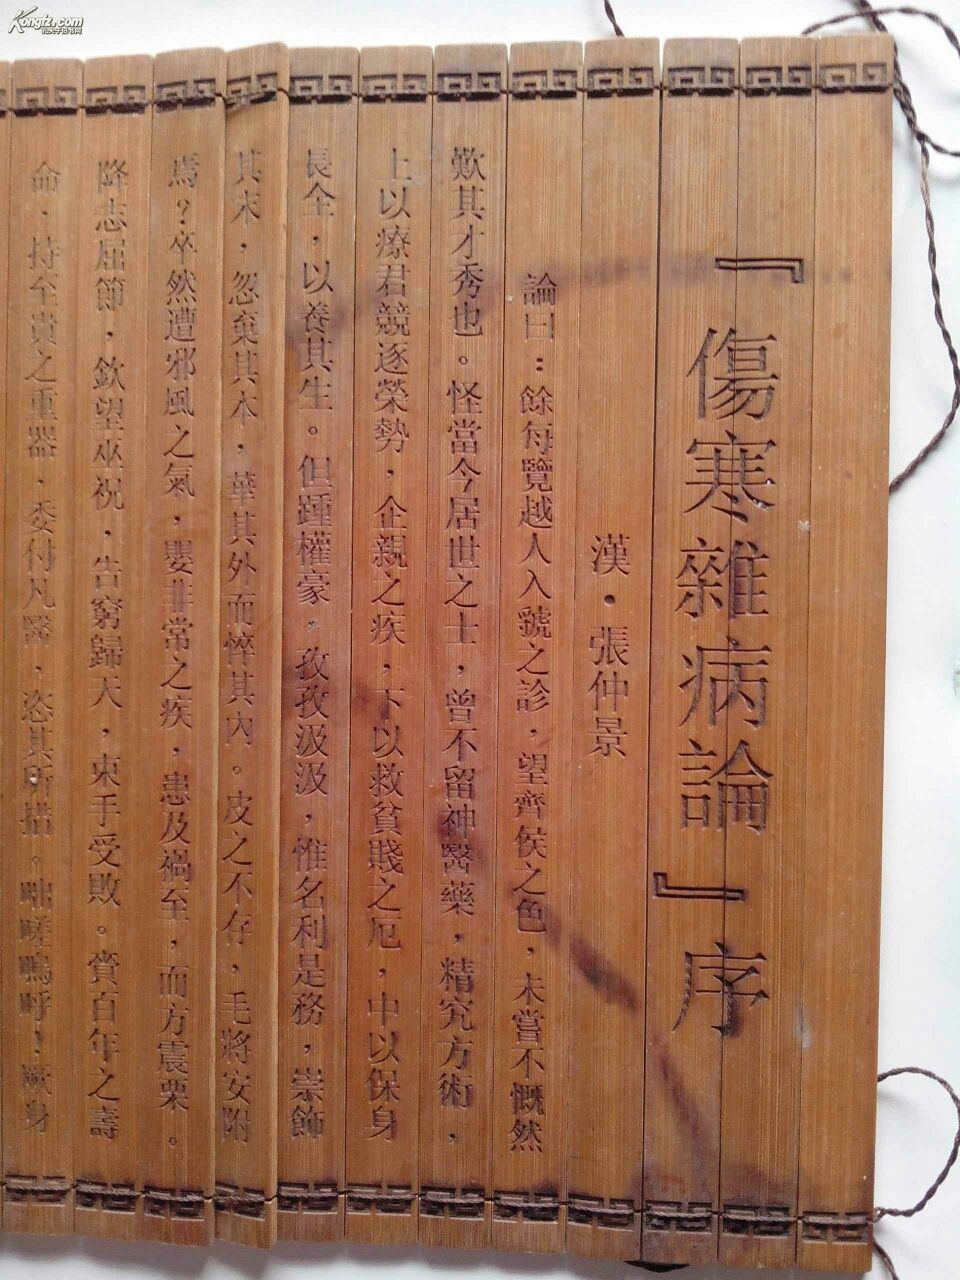 『傷寒雜病論』序
漢·張仲景
論曰：餘每覽越人入虢之診，望齊侯之色，未嘗不慨然
歎其才秀也。怪當今居世之士，曾不留神醫藥，精究方術，
上以療君親之疾，下以救貧賤之厄，中以保身
長全，以養其生。但踵權豪，孜孜汲汲，惟名利是務，崇飾
其末，忽棄其本，華其外而悴其內。皮之不存，毛將安附
焉？卒然遭邪風之氣，嬰非常之疾，患及禍至，而方震栗。
降志屈節，欽望巫祝，告窮歸天，束手受敗。賚百年之壽
命，持至貴之重器，委付凡醫，恣其所措。咄嗟嗚呼！厥身
Kongfz.com
孔夫子旧书网